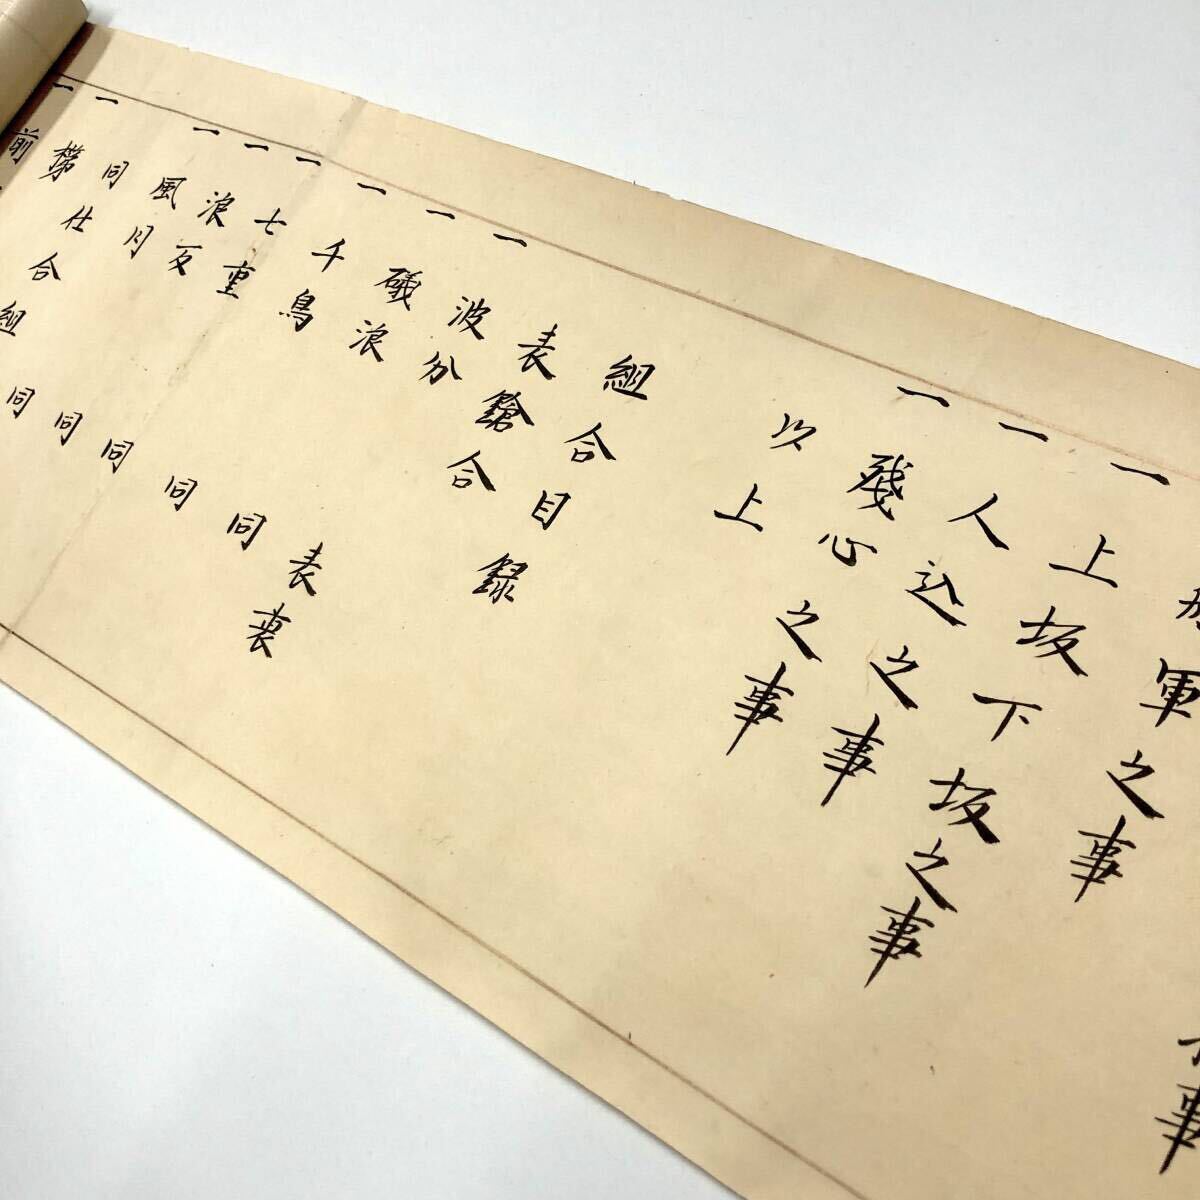 軍之事
一 上坂下坂之事
一 人込之事
一 殘心之事
以上
組合目録
表鎗合
一 波分 表裏
一 礒浪 同
一 千鳥 同
一 七重 同
一 浪返 同
一 風月 同
同仕合組
一
一 前